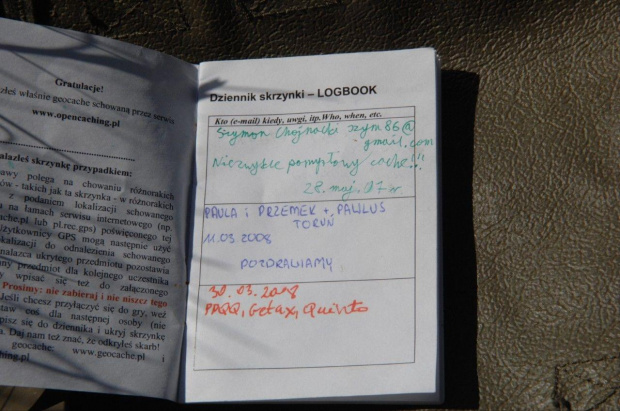 Gratulacje!
źleś właśnie geocache schowaną przez serwis
www.opencaching.pl
nalazłeś skrzynkę przypadkiem:
awy polega na chowaniu różnorakich
ów - takich jak ta skrzynka - w różnorakich
z podaniem lokalizacji schowanego
na łamach serwisu internetowego (np.
ache.pl lub pl.rec.gps) poświęconego tej
użytkownicy GPS mogą następnie użyć
okalizacji do odnalezienia schowanego
nalazca ukrytego przedmiotu pozostawia
nny przedmiot dla kolejnego uczestnika
wpisać się do załączonego
Prosimy: nie zabieraj i nie niszcz tego
Jeśli chcesz przyłączyć się do gry, weź
taw coś dla następnej osoby (nie
pisz się do dziennika i ukryj skrzynkę
a. Daj nam też znać, że odkryłeś skarb!
geocache: www.geocache.pl i
ching.pl
Dziennik skrzynki – LOGBOOK
Kto (e-mail) kiedy, uwgi, itp.Who, when, etc.
Szymon Chojnacki szym86@
gmail.com
Niezwykle pomysłowy cache!!!
28. maj. 07 r
PAULA i PRZEMEK + PAWLUS
TORUŃ
11.03.2008
POZDRAWIAMY
30.03.2008
PAQQ, Getax, Quinto